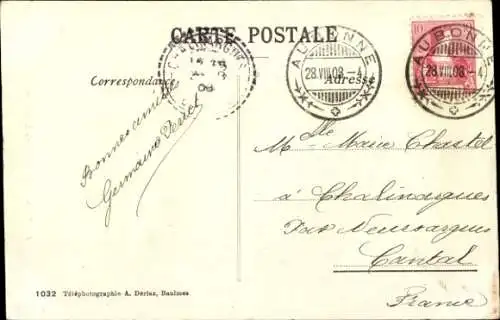 CARTE POSTALE
Correspondance
Adresse
AUBONNE
28.VIII.08.-4
AUBONNE
28.VIII.08.-4
10
Germaine
Mlle Marie Chastel
à Chalinargues
Par Neussargues
Cantal
France
1032 Téléphotographie A. Dériaz, Baulmes